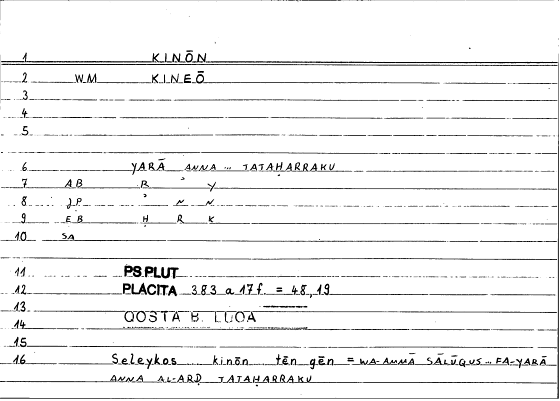 1 KINŌN
2 WM KINEŌ
3
4
5
6 YARĀ ANNA … TATAḤARRAKU
7 AB R ʾ Y
8 JP ʾ N N
9 EB Ḥ R K
10 SA
11 PS PLUT
12 PLACITA 383 a 17 f. = 48,19
13
14 QOSTA B. LUQA
15
16 Seleykos kinōn tēn gēn = WA-AMMĀ SĀLŪQUS … FA-YARĀ
ANNA AL-ARḌ TATAḤARRAKU